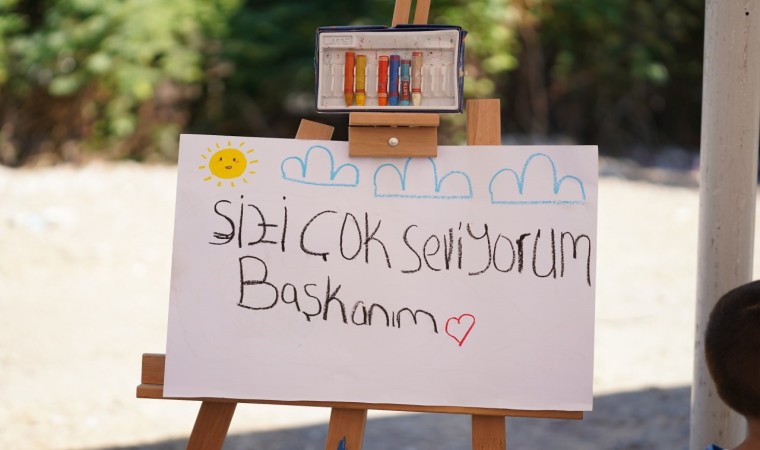 Sizi çok seviyorum
Başkanım